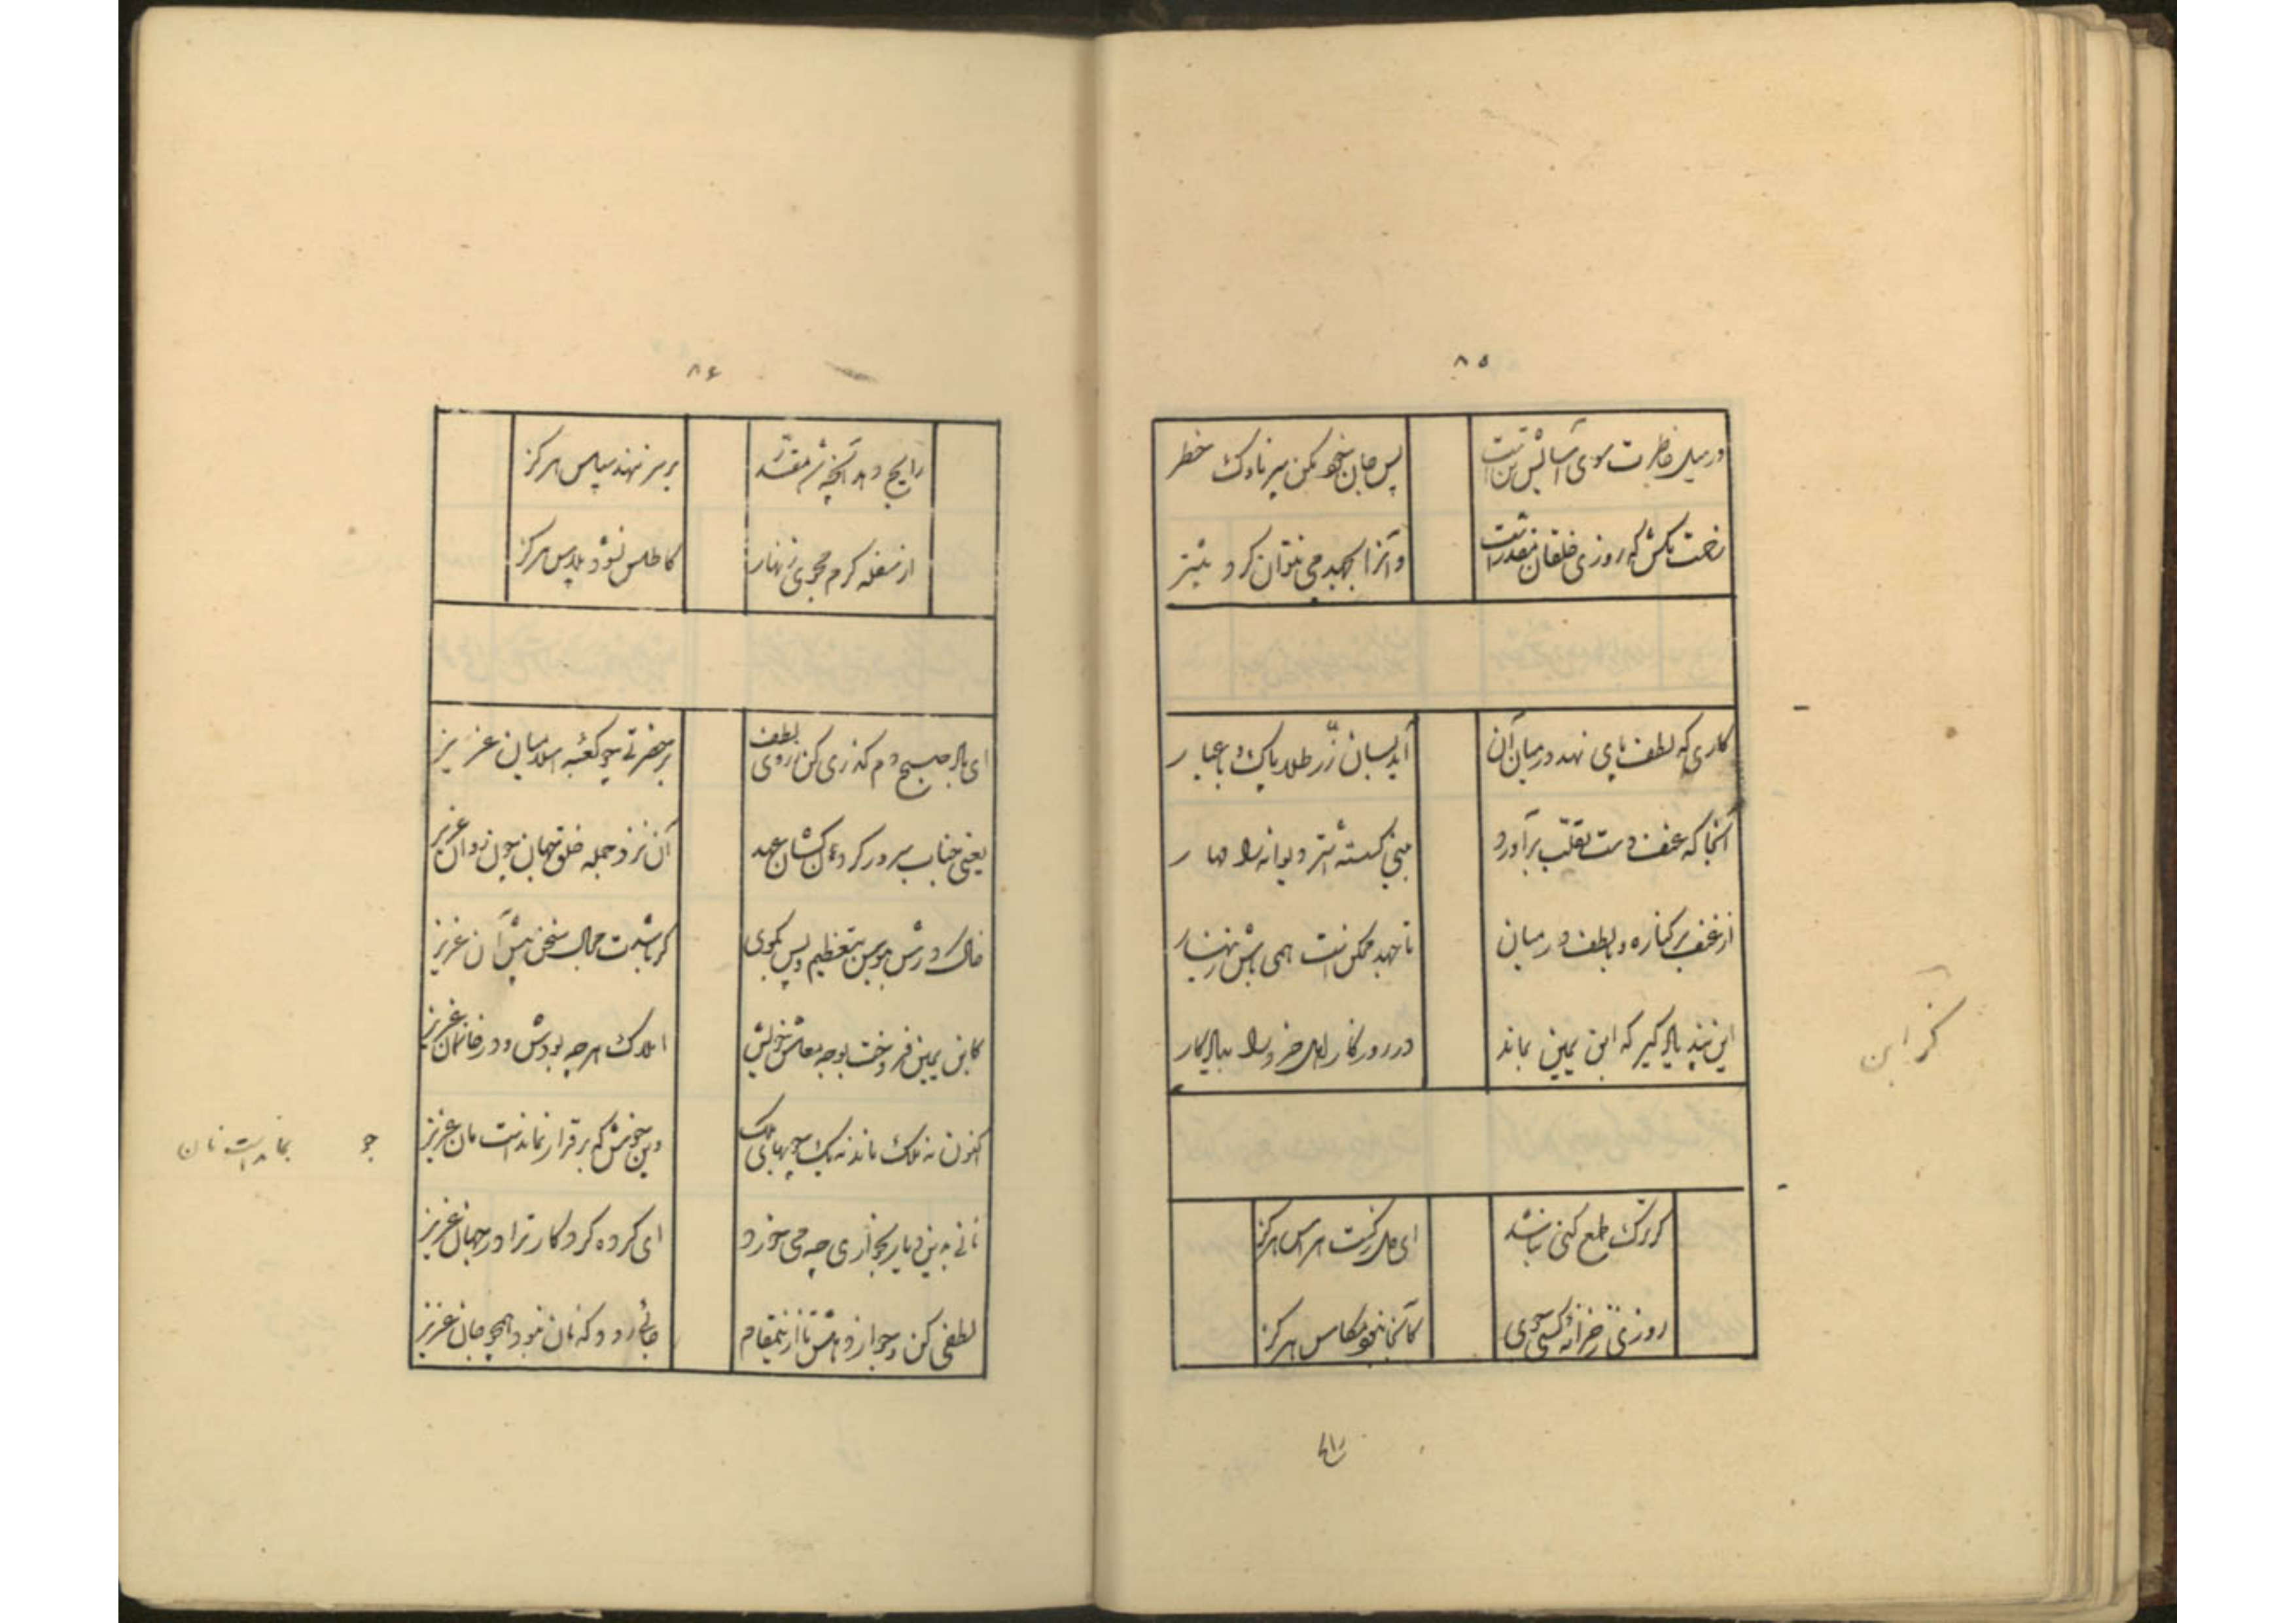 ۸۵
در میل خاطرت سوی آسایش تن است پس جان سخو مکن سپر ناوک خطر
زحمت مکش که روزی خلقان مقدر است و آنرا بجهد می نتوان کرد بیشتر
کاری که لطف پای نهد در میان آن آید بسان زرّ طلا پاک و با عیار
آنجا که عنف دست تغلّب برآورد بینی گسسته اشتر دیوانه را مهار
از عنف بر کناره و با لطف در میان تا جهد ممکن است همی باش زینهار
این پند یاد گیر که ابن یمین بماند در روزگار اهل خرد را بیادگار
گر ترک طمع کنی نباشد ای دل ز کست هراس هرگز
روزی ز خزانه کسی جوی کآنجا نبود مکاس هرگز
گر این
را
۸۶
رایج دهد آنچه شد مقدّر بر سر ننهد سپاس هرگز
از سفله کرم مجوی زنهار کاطلس نشود پلاس هرگز
ای باد صبح دم گذری کن ز روی لطف بر حضرتی چو کعبه اسلامیان عزیز
یعنی جناب سرور گردن کشان عهد آن نزد جمله خلق جهان چون روان عزیز
خاک درش ببوس بتعظیم و پس بگوی گر باشدت مجال سخن پیش آن عزیز
کابن یمین فروخت بوجه معاش خویش املاک هر چه بودش و در خانمان عزیز
اکنون نه ملک ماند نه یک جو بهای ملک وین خوش که برقرار نماندست مان عزیز
جو نماندست نان
نانی بدین دیار بخواری چه می خورد ای کرده کردگار ترا در جهان عزیز
لطفی کن و جواز دهش تا ازینمقام جائی رود که نان نبود همچو جان عزیز